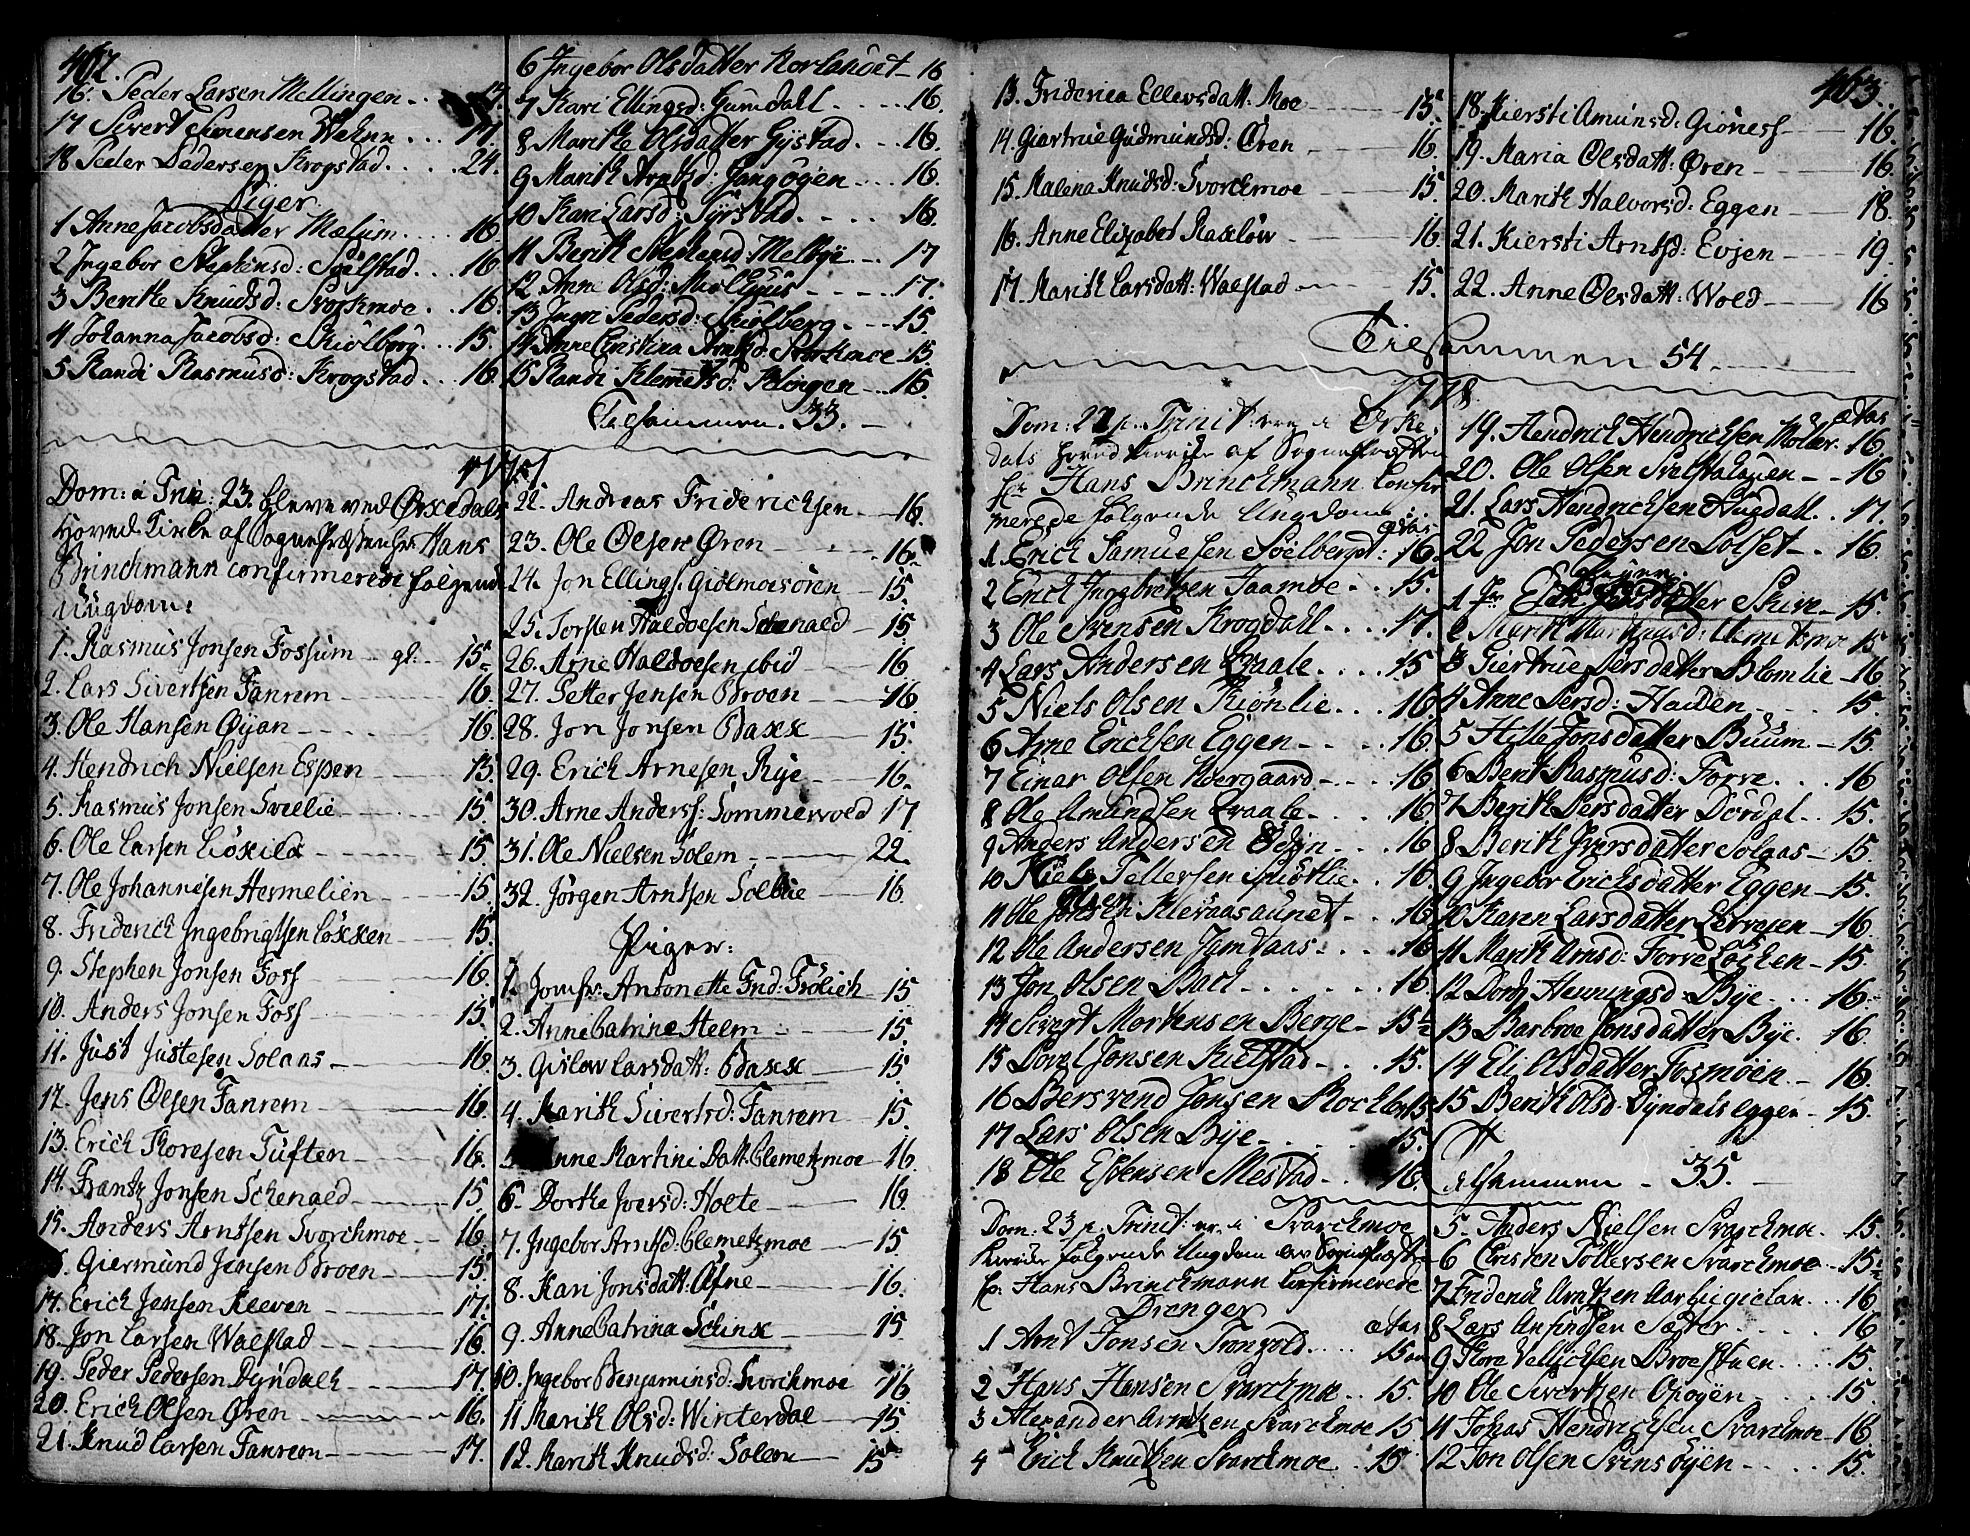 402.
16. Peder Larsen Mellingen . . 17.
17 Sivert Simensen Wehnn . . . 17.
18 Peder Pedersen Krogstad . . . . 24.
Piger
1 Anne Jacobsdatter Mælum . . . 16.
2 Ingebor Stephensd: Solstad. . . 16.
3 Berithe Knudsd: Svorkmoe . . 16.
4 Johanna Jacobsd: Skiølberg . . 15.
5 Randi Rasmusd: Krogstad . . . 16.
6 Ingebor Olsdatter Korlandet - 16
7 Kari Ellingsd: Gumdahl . . . . 16.
8 Marithe Olsdatter Gystad . . 16.
9 Marith Arntsd: Langøgen . . . 16.
10 Kari Larsd: Syrstad . . . . 16.
11 Berith Stephensd: Melbye - - 17
12. Anne Olsd: - - - 17.
13 Ingri Pedersd: Skiølberg . - - 15.
14 Anne Christina Arntsd: Svorkmoe - 15
15 Randi Klemetsd: Klingen - - 16.
Tilsammen . 33. -
1777
Dom: a Trin: 23. bleve ved Ørkedals
Hoved Kirke af Sognepræsten Hr Hans
Brinchmann confirmerede følgende
Ungdom:
1. Rasmus Jonsen Fossum - gl. - 15
2. Lars Sivertsen Fanrem - 16.
3. Ole Hansen Øyan - 16.
4. Hendrich Nielsen Espen - 15.
5. Rasmus Jonsen Svelie - 15.
6. Ole Larsen - 15.
7. Ole Johannesen Hermelien - 15.
8. Friderich Ingebrigtsen Løkken - 15.
9. Stephen Jonsen Foss - 16.
10. Anders Jonsen Foss - 15.
11. Just Justesen Solaas - 16.
12. Jens Olsen Fanrem - 16.
13. Erich Toresen Tuften - 16.
14. Frantz Jonsen Schenald - 15.
15. Anders Arntsen Svorchmoe - 16.
16. Giermund Jensen Broen - 15.
17. Erich Jensen Kleeven - 17.
18. Jon Larsen Walstad - 16.
19. Peder Pedersen Dyndahl - 17.
20. Erich Olsen Øren - 16.
21. Knud Larsen Fanrem - 17.
22. Andreas Friderichsen - 16.
23. Ole Olsen Øren - 16.
24. Jon Ellings: Gidlmoesøren - 15.
25. Torsten Haldoesen Schenald - 15.
26. Arne Haldoesen ibid - 16.
27. Petter Jensen Broen - 16.
28. Jon Jonsen Bakk - 15.
29. Erich Arnesen Rye - 16.
30. Arne Anderss: Sommervold 17
31. Ole Nielsen Solem - 22.
32. Jørgen Arntsen Solbue - 16.
Piger:
1. Jomfr: Antonette Frid: Frølich 15
2. Anne Catrine Heem - 15.
3. Gislow Larsdatt: Bakk - 15
4. Marith Sivertsd: Fanrem - 15.
5. Anne Martine Datt: Clemetzmoe - 16.
6. Dorthe Joersd: Holte - 16.
7. Ingebor Arntsd: Clemetzmoe - 15.
8. Kari Jonsdatt: Øfne - 16.
9. Anne Catrina Schink - 15.
10. Ingebor Benjaminsd: Svorchmoe - 16
11 Marith Olsd: Winterdal - 15.
12. Marith Knudsd: Solem - 15.
403.
13. Friderica Ellevsdatt: Moe - 15.
14. Giertrue Gudmundsd: Øren - 16.
15. Malena Knudsd: Svorchmoe - 15.
16. Anne Elizabet Rasløw - 16.
17. Marith Larsdatt: Walstad - 15.
18. Kiersti Amunsd: Giøness - 16.
19. Maria Olsdatt: Øren - 16.
20. Marith Halvorsd: Eggen - 18.
21. Kiersti Arntsd: Evjen - 19.
22. Anne Olsdatt: Wold - 16
Tilsammen 54.
1778.
Dom: 22 p. Trinit: ere i Ørke-
dals hoved kirke af Sognepræsten
Hr Hans Brinchmann confir
merede følgende Ungdom
ætas
1 Erich Samuelsen Soelberg: 16.
2 Erich Ingebretsen Jaamoe - . . 15.
3 Ole Svensen Krogdall. . . . 17.
4 Lars Andersen Qvaale . . . . 15
5 Niels Olsen Kiønlie. . . 16
6 Arne Erichsen Eggen - - . . 16.
7 Einar Olsen Moergaard - - . . 16
8 Ole Amundsen Qvaale. - - . 16.
9 Anders Andersen - . . 16
10 Niels Tellefsen Skiøtlie. . 16.
11 Ole Jonsen Klevaasaunet . . 16
Olsen
12 Ole Andersen Jamtaas . . . 16
13 Jon Olsen Bach . . . . . . 16.
14 Sivert Mortensen Berge - 15 ½
15 Povel Jonsen Kielstad - . . 15.
16 Bersvend Jonsen 15
17 Lars Olsen Bye - . . . . 15.
18 Ole Estensen Mestad . . 16.
ætas
19. Hendrich Hendrichsen Møller. 16.
20. Ole Olsen - - 16
21. Lars Hendrichsen Hugdall. - 17.
22 Jon Pedersen Solset - . 16.
1 Skive - 15.
2 Marith : Clemetsmoe 15
3 Giertrue Persdatter Blomlie - 16
4 Anne Persd: Haiden - . . . 15.
5 Hille Jonsdatter Buum - 15.
6 Berit Rasmusd: Forve. . . 16
7 Berith Persdatter Dørdal . . 15.
8 Berith Iversdatter Solaas - 15.
9 Ingebor Erichsdatter Eggen - 15.
10 Karen Larsdatter Lervesen - 16.
11 Marith Arnsd: Forve Løchen - 15.
12 Dordj Henningsd: Bye . . . 16.
13 Barbroe Jonsdatter Bye. 16.
14 Eli Olsdatter Fosmoen - 16.
15 Berith Olsd: Dyndals eggen - 15.
Tilsammen - 35. -
Dom: 23 p. Trinit: er i Svarchmoe
kirke følgende Ungdom av Sognepræsten
Hr. Hans Brinchmann Confirmerede
Drenger
ætas
1 Arnt Jonsen Trongvold . . . . 15 aar
2 Hans Hansen Svarchmoe . . 15.
3 Alexander Arntsen Svarchmoe 15
4 Erich Knudsen Svarchmoe . . 15
5. Anders Nielsen Svarchmoe . 15.
6 Christen Tollersen Svarchmoe . . 15 ½
7 Friderich Arntsen Aarligielan. . . 16
8 Lars Anfindsen Sæter . . . . 16
9 Tlore Vellichsen Broestuen . . . . 15.
10 Ole Sivertsen Opøyen - . . . . 15.
11 Johas Hendrichsen Svarchmoe - 16.
12 Jon Olsen Svinsøyen - . . . 15.